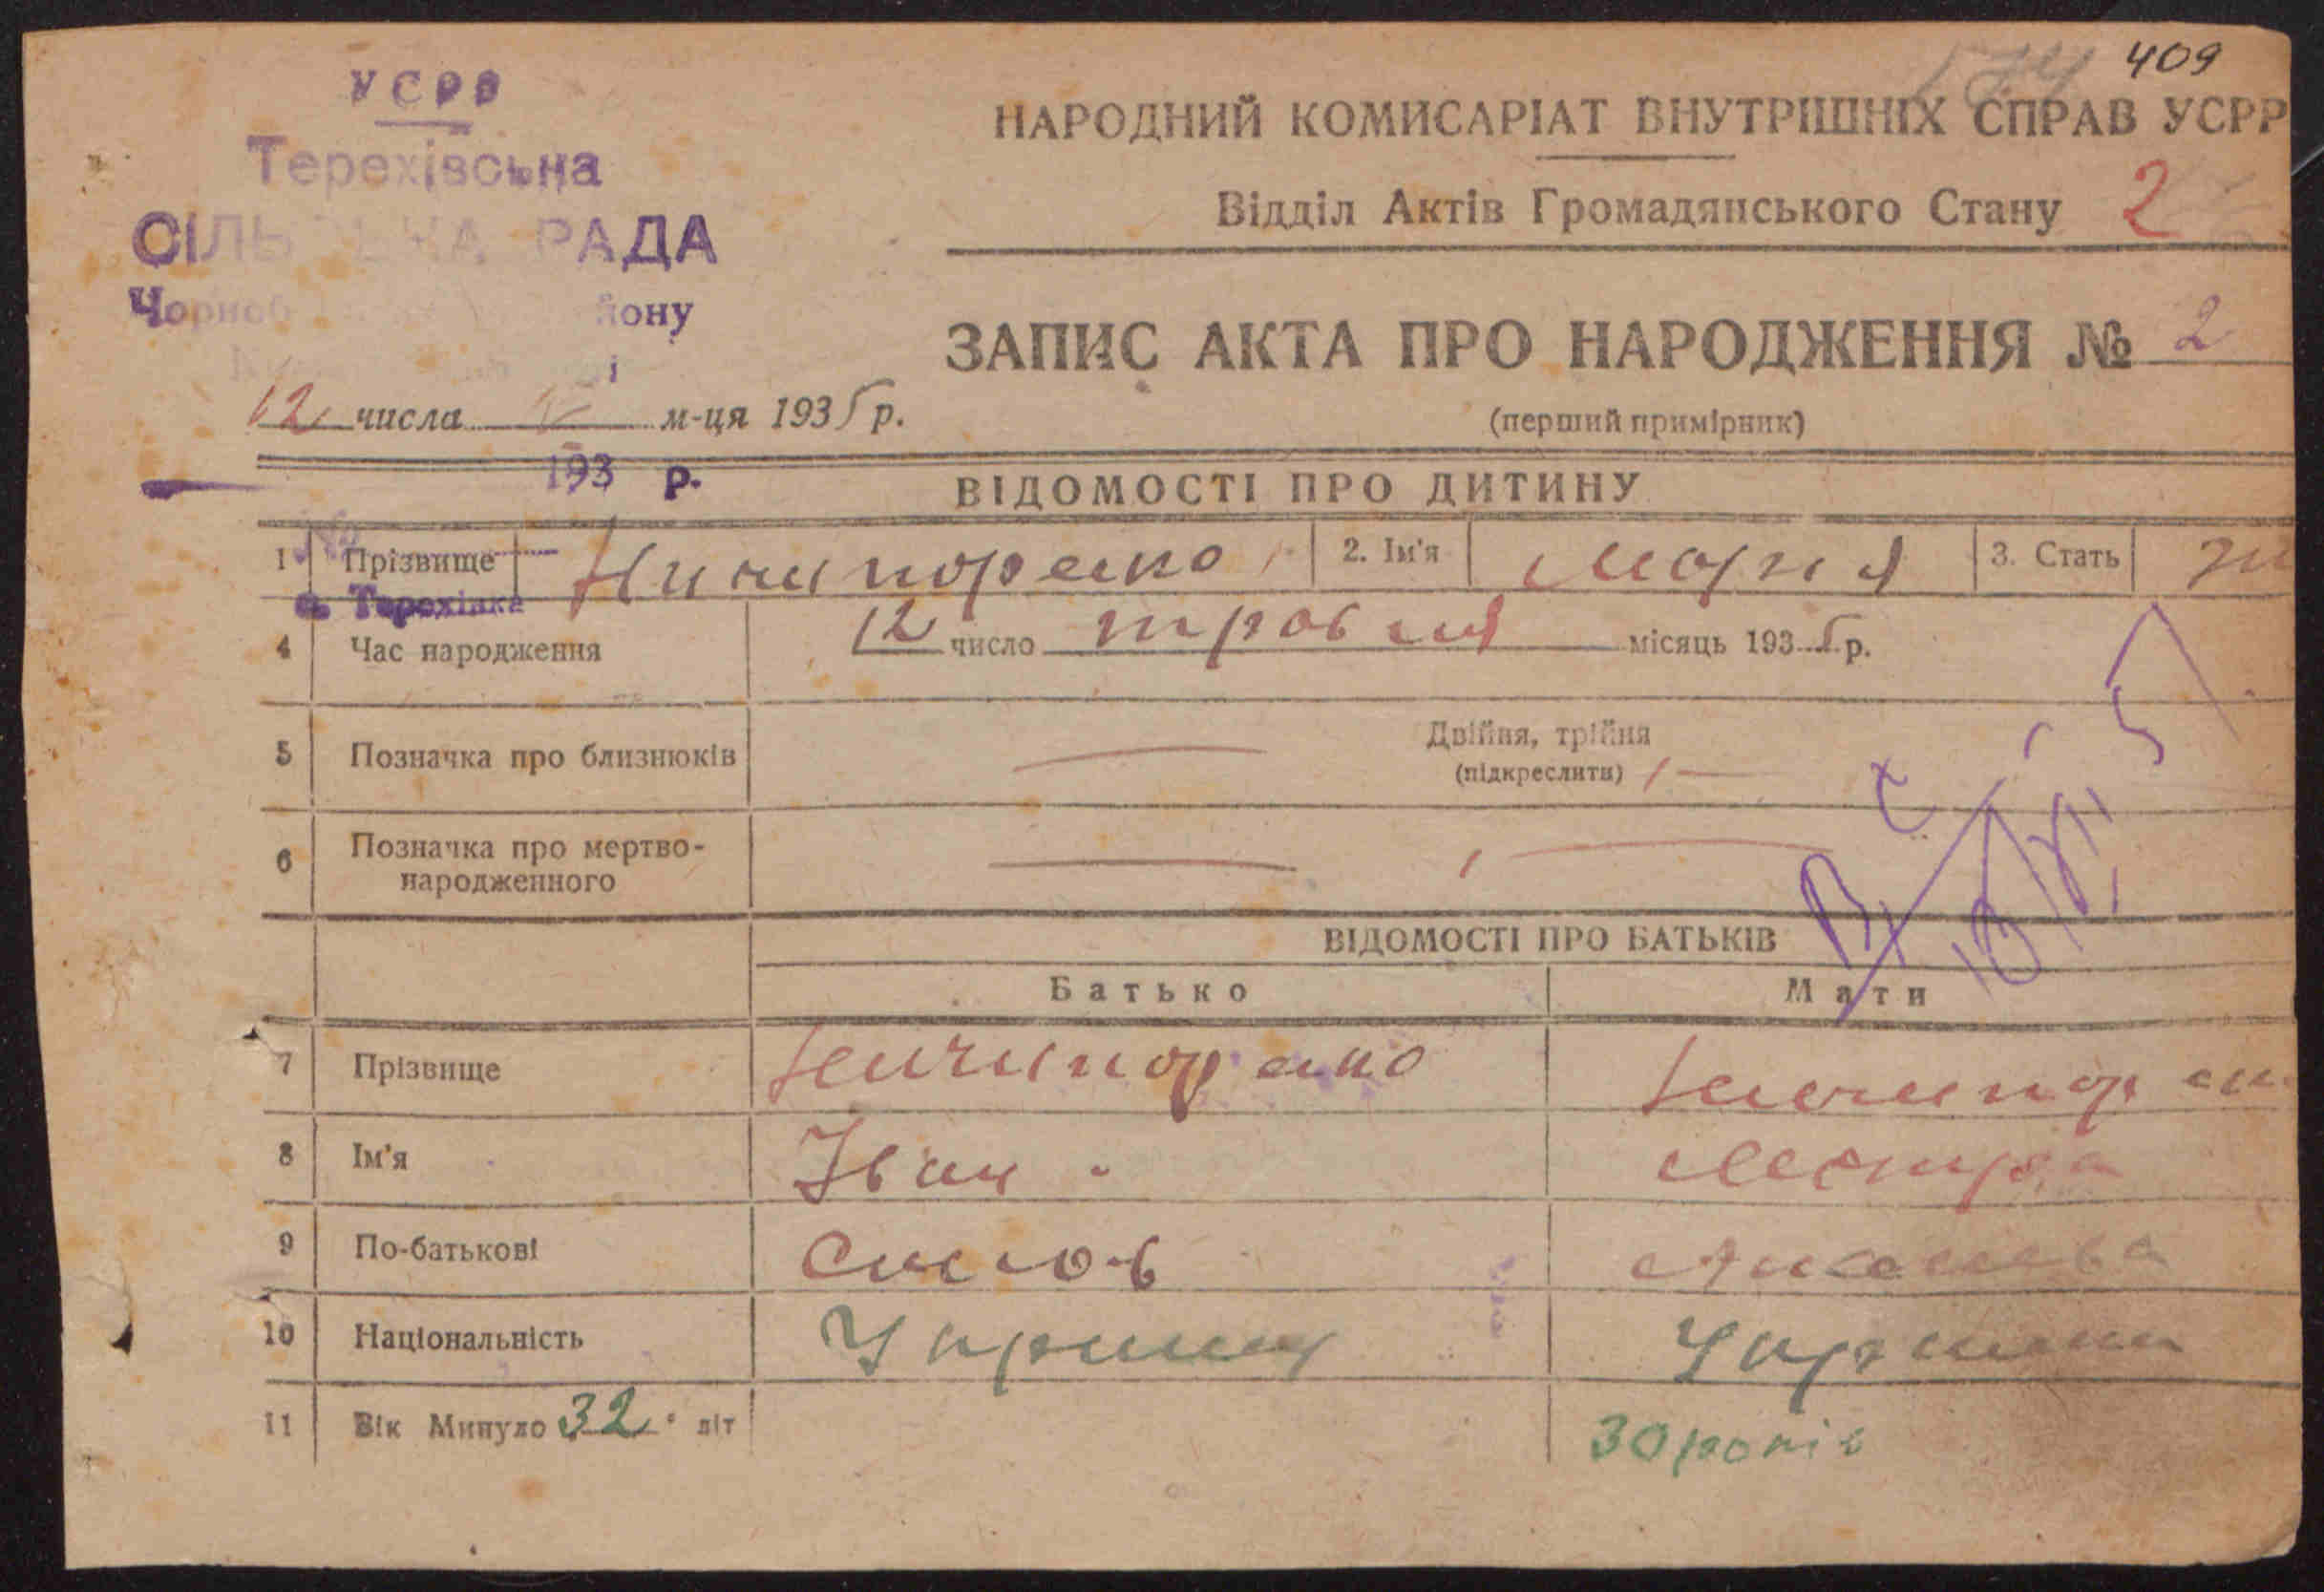 409
УСРР
Терехівська
СІЛЬСЬКА РАДА
Чорноб йону
12 числа V м-ця 1935 р.
193 р.
№
с. Терехівка
НАРОДНИЙ КОМИСАРІАТ ВНУТРІШНІХ СПРАВ УСРР
Відділ Актів Громадянського Стану 2
ЗАПИС АКТА ПРО НАРОДЖЕННЯ № 2
(перший примірник)
ВІДОМОСТІ ПРО ДИТИНУ
1 Прізвище Ничипоренко 2. Ім'я Марія 3. Стать
4 Час народження 12 число травня місяць 1935 р.
5 Позначка про близнюків Двійня, трійня
(підкреслити)
6 Позначка про мертво-
народженного
ВІДОМОСТІ ПРО БАТЬКІВ
Батько Мати
7 Прізвище Ничипоренко Ничипорен
8 Ім'я Іван
9 По-батькові
10 Національність
11 Вік Минуло 32 літ 30 років